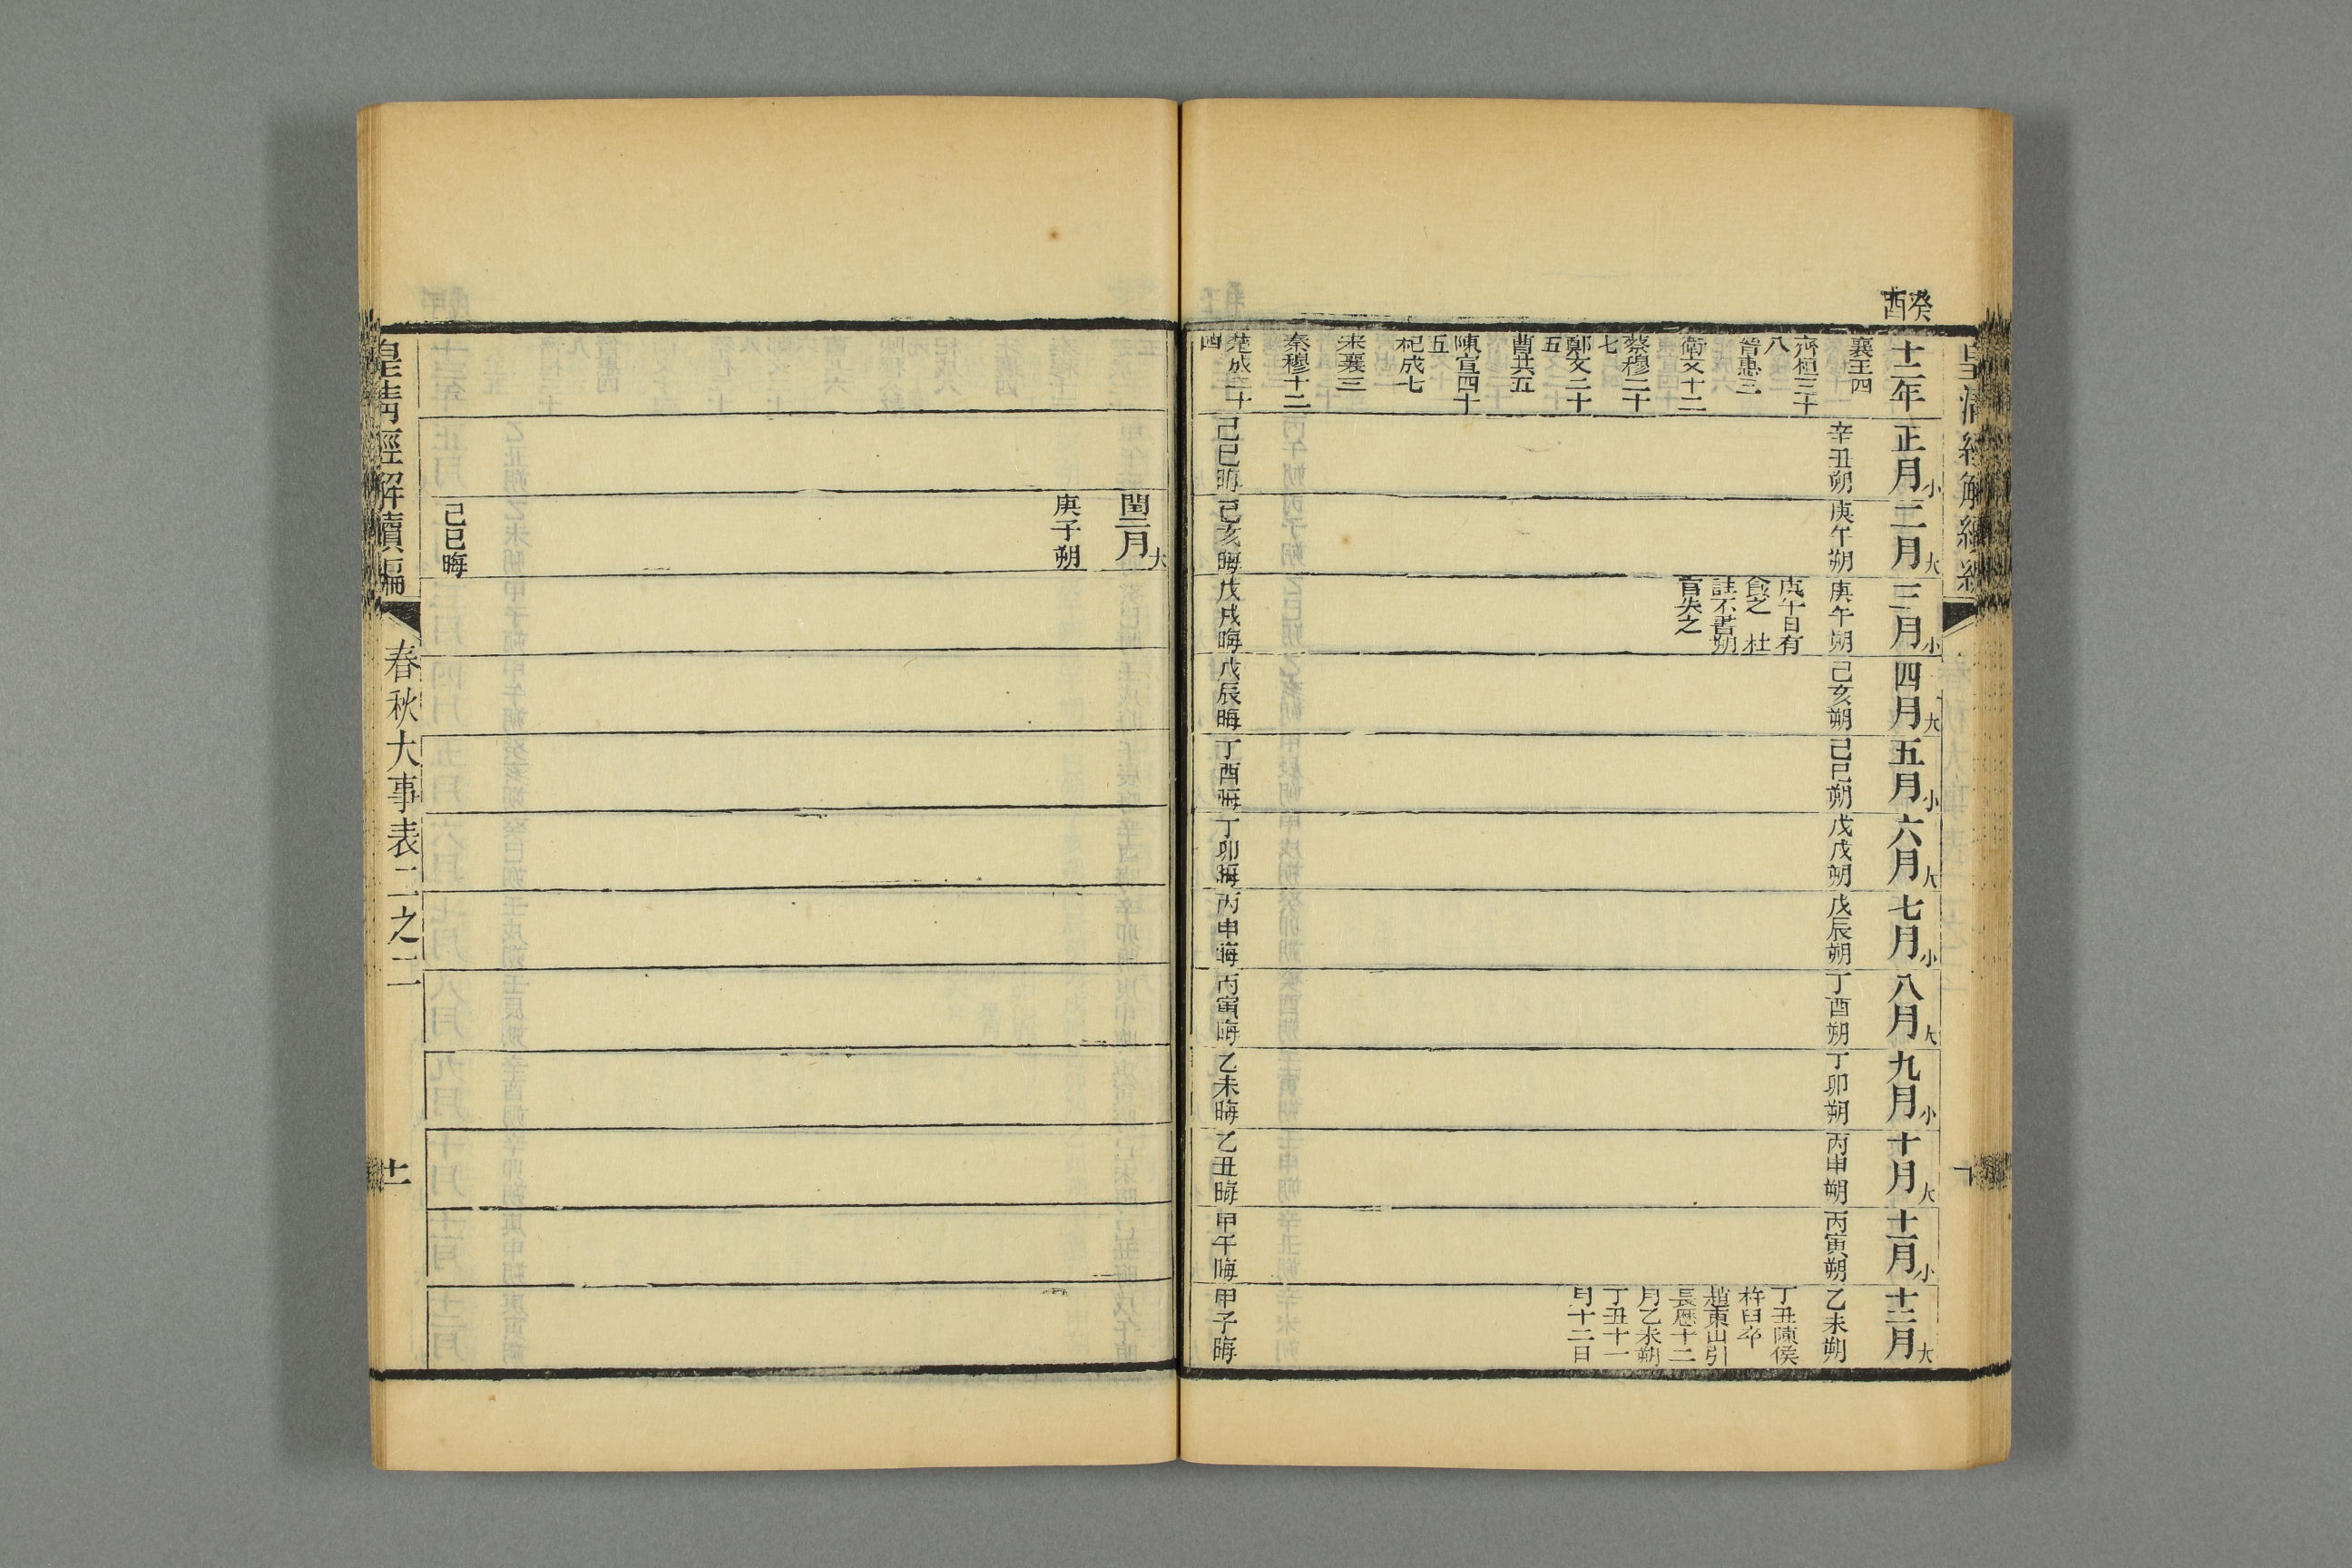 皇清經解續編
癸酉
十二年
襄王四
齊桓三十
八
晉惠三
衛文十二
蔡穆二十
七
鄭文二十
五
曹共五
陳宣四十
五
杞成七
宋襄三
秦穆十二
楚成二十
四
正月小
辛丑朔
己巳晦
二月大
庚午朔
己亥晦
三月小
庚午朔
庚午日有
食之 杜
註不書朔
官失之
戊戌晦
四月大
己亥朔
戊辰晦
五月小
己巳朔
丁酉晦
六月大
戊戌朔
丁卯晦
七月小
戊辰朔
丙申晦
八月大
丁酉朔
丙寅晦
九月小
丁卯朔
乙未晦
十月大
丙申朔
乙丑晦
十一月小
丙寅朔
甲午晦
十二月大
乙未朔
丁丑陳侯
杵臼卒
趙東山引
長歷十二
月乙未朔
丁丑十一
月十二日
甲子晦
閏二月大
庚子朔
己巳晦
皇清經解續編
春秋大事表二之二
十一